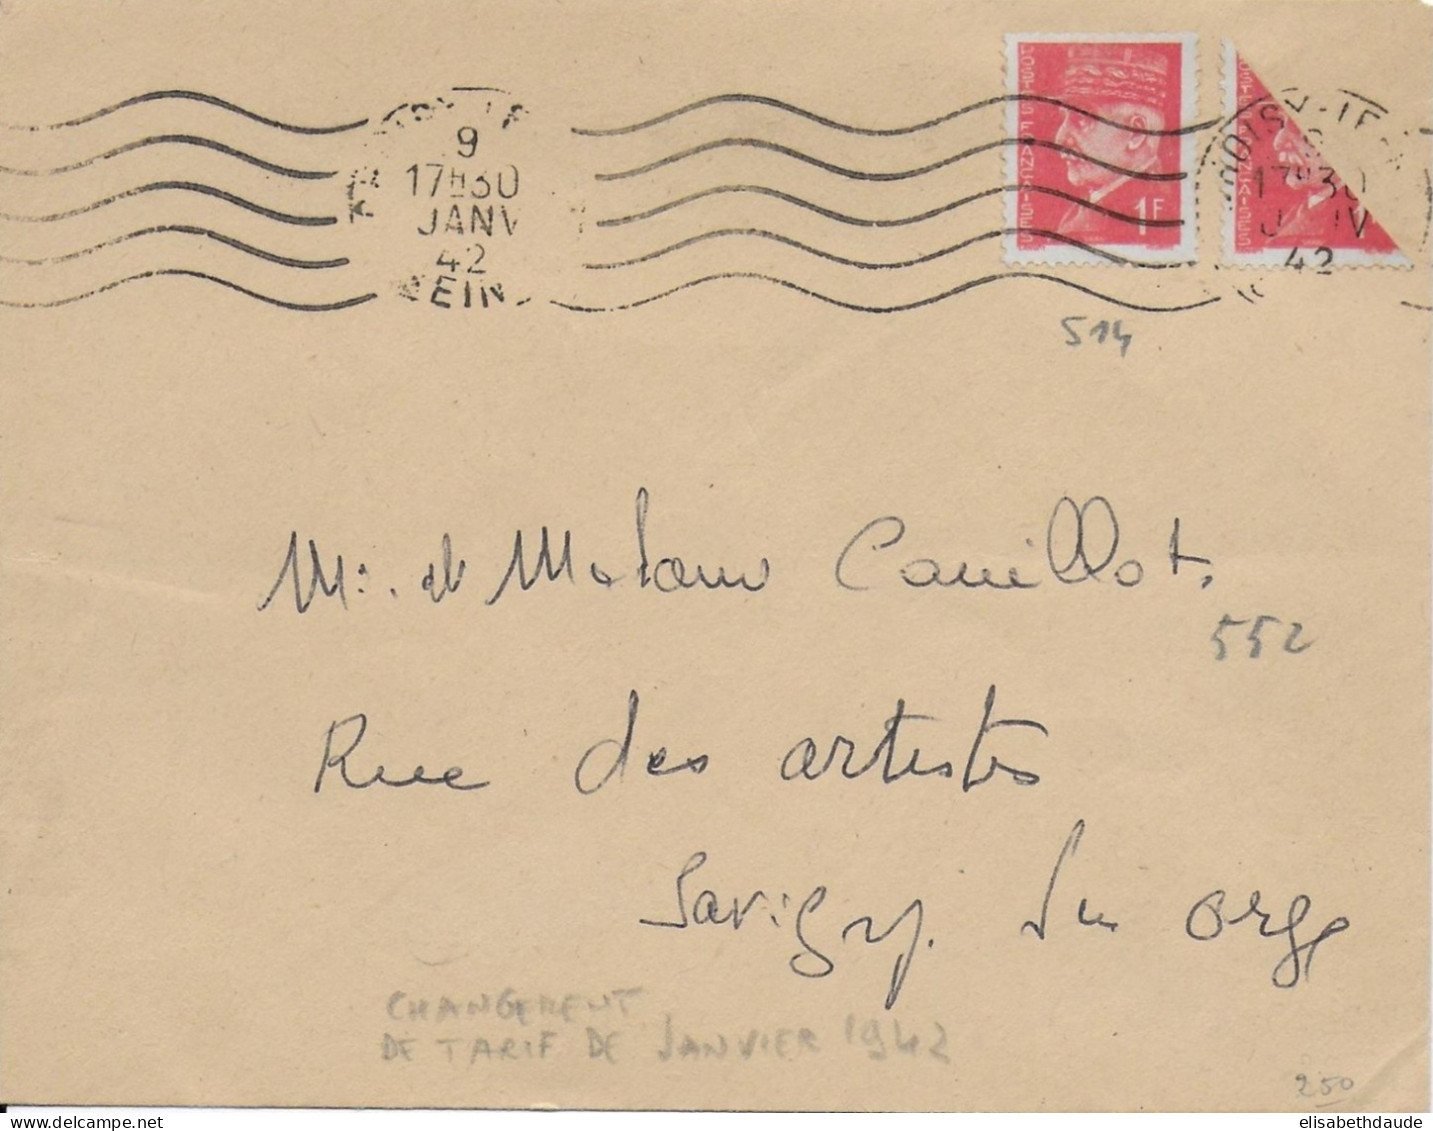 9
17H30
JANV
42
POSTES FRANÇAISES
1F
NOISY-LE-
17H30
42
514
M. et Madame Caillot
552
Rue des artistes
Savigny. Sur Orge
CHANGEMENT
DE TARIF DE JANVIER 1942
250
elisabethdaude